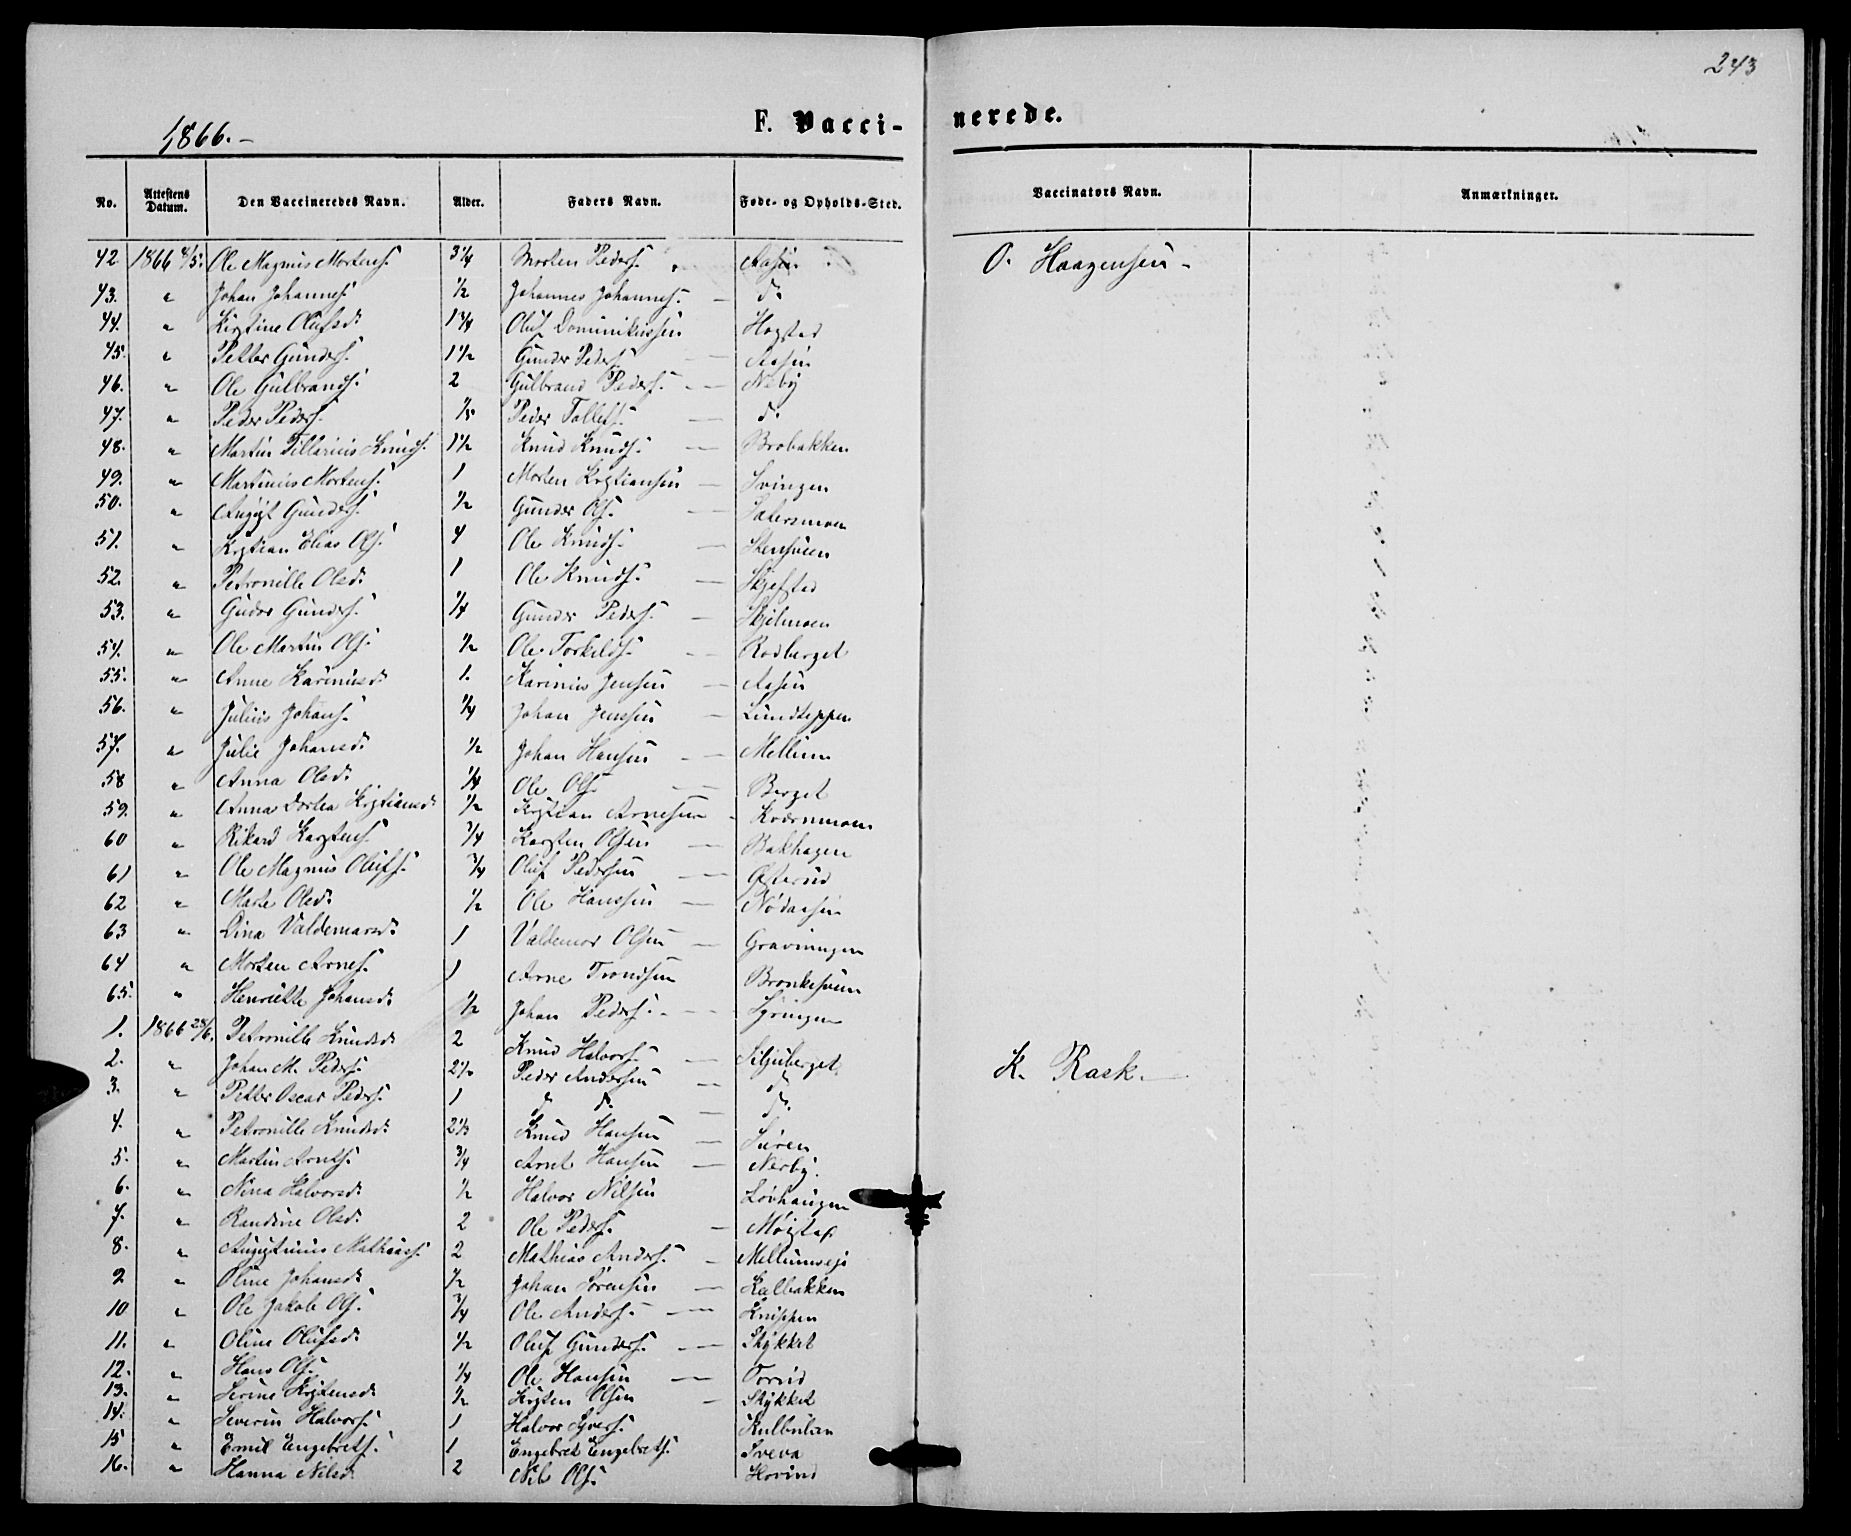 243
1866.-
F. Vacci- nerede.
No. Attestens Datum. Den Vaccineredes Navn. Alder. Faders Navn. Føde- og Opholds-Sted. Vaccinators Navn. Anmærkninger.
42. 1866 Ole Magnus Mortens. 3 1/4 Morten Peders. Aasen O. Haagensen -
43. " Johan Johannes. 1/2 Johannes Johannes. — do
44. " Kirstine Olufsd. 1 3/4 Oluf Dominikussen Hogstad
45. " Petter Gunders. 1 1/2 Gunder Peders. — Aasen
46. " Ole Gulbrands. 2 Gulbrand Peders. — Neby
47. " Peder Peders. 1/5 Peder Tollefs. — do
48. " Martin Knuds. 1 1/2 Knud Knuds. — Brobakken
49. " Martinius Mortens. 1 Morten Krystiansen — Svingen
50. " August Gunders. 1/2 Gunder Ols. — Satersmoen
51. " Krystian Elias Ols. 4 Ole Knuds. — Stensveen
52. " Petronille Olsd. 1 Ole Knuds. — Skjefstad
53. " Gudor Gunders. 1/4 Gunder Peders. — Skjelmoen
54. " Ole Martin Ols. 1/2 Ole Torkilds. — Rodberget
55. " Anne Karinusd. 1. Karinius Jensen — Aasen
56. " Julius Johans. 1/4 Johan Jenssen — Lundseppen
57. " Julie Johansd. 1/2 Johan Hansen — Mellum
58 " Anna Olsd. 1/4 Ole Ols. — Berget
59. " Anna Dortea Krystiansd. 1/2 Krystian Arnesen - Kvernmoen
60 " Rikard Karstens. 3/4 Karsten Olsen — Bakhagen
61 " Ole Magnus Olufs. 3/4 Oluf Pedersen — Østerud
62 " Marte Olsd. 1/2 Ole Hanssen — Nødaasen
63 " Lina Valdemarsd. 1 Valdemar Olsen — Gravningen
64 " Morten Arnes. 1 Arne Trondsen Bronkesveen
65. " Henriette Johansd. 1/2 Johan Peders. — Syringen
1. 1866 28/6. Petronille Knudsd. 2 Knud Halvors. — Siljuberget K. Rask. —
2. " Johan M. Peders. 2 1/2 Peder Andersen — do
3. " Petter Oscar Peders. 1 do do — do
4. " Petronille Knudsd. 2 1/3 Knud Hansen — Suren
5. " Martin Arnts. 3/4 Arnt Hansen — Nerby.
6. " Nina Halvorsd. 1/2 Halvor Nilsen Løvhaugen
7. " Randine Olsd. 2 Ole Peders. — Møistad
8. " Augustinus Mathias. 2 Mathias Anders. — Mellumseje
9. " Oline Johansd. 1/2 Johan Sørensen — Kalbakken
10 " Ole Jakob Ols. 3/4 Ole Anders. — Knippen
11. " Oline Olufsd. 1/2 Oluf Gunders. — Stykket
12. " Hans Ols. 1/4 Ole Hansen — Torud
13. " Serine Krystensd. 1/2 Krysten Olsen — Stykket
14. " Severin Halvors. 1 Halvor Syvers. Kulbulien
15 " Emil Engebrets. 1 Engebret Engebrets. Sveva
16. " Hanna Nilsd. 2 Nils Ols. Hovind